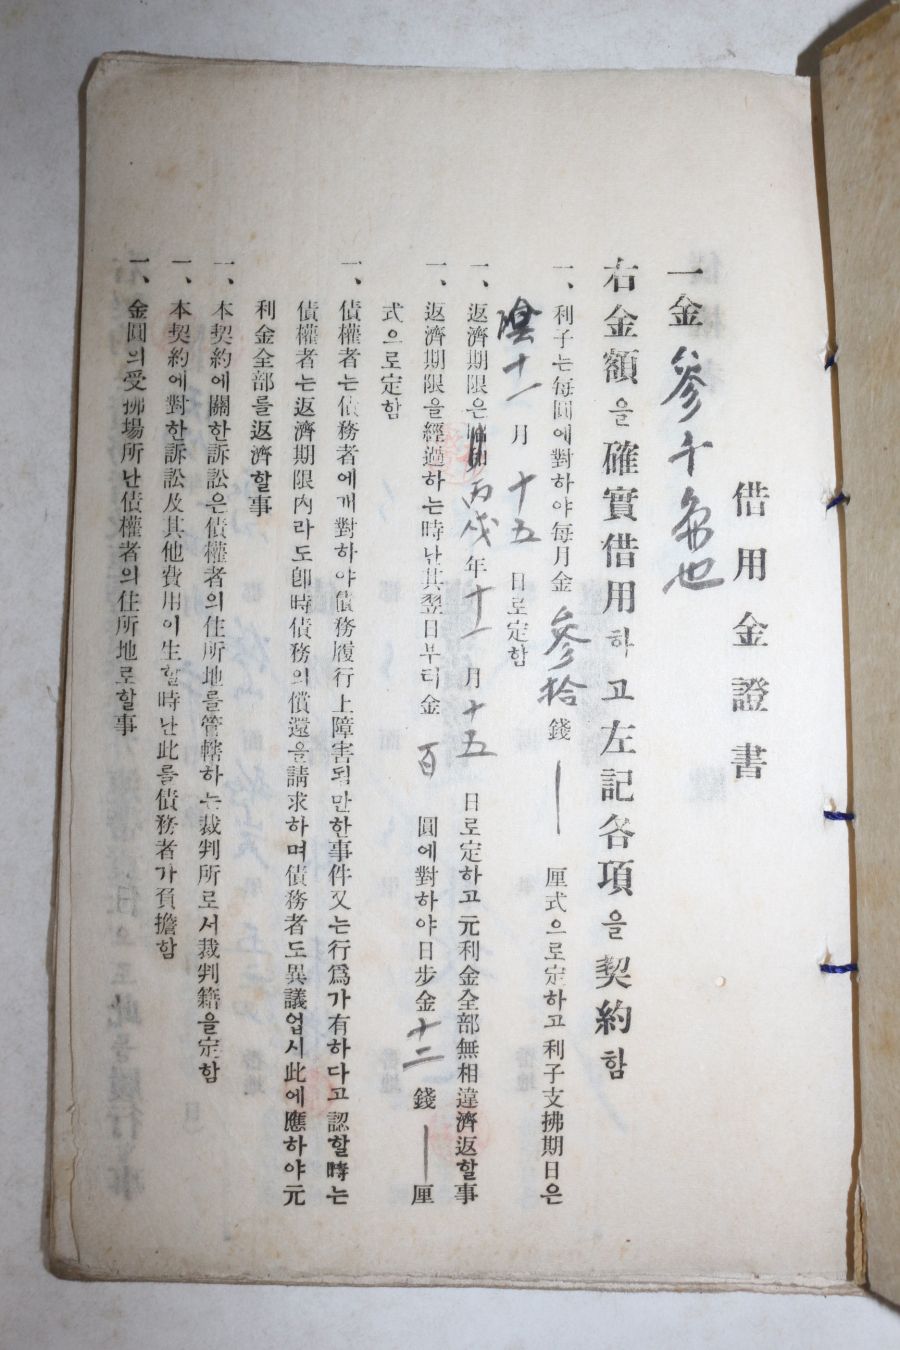 借用金證書
一金參十圓也
右金額을確實借用하고左記各項을契約함
一、利子는每圓에對하야每月金參拾錢 厘式으로定하고利子支拂期日은
陰十一月十五日로定함
一、返濟期限은 丙戌年十一月十五日로定하고元利金全部無相違濟返할事
一、返濟期限을經過하는時난其翌日부터金百圓에對하야日步金十二錢 厘
式으로定함
一、債權者는債務者에개對하야債務履行上障害될만한事件又는行爲가有하다고認할時는
債權者는返濟期限內라도卽時債務의償還을請求하며債務者도異議업시此에應하야元
利金全部를返濟할事
一、本契約에關한訴訟은債權者의住所地를管轄하는裁判所로서裁判籍을定함
一、本契約에對한訴訟及其他費用이生할時난此를債務者가負擔함
一、金圓의受拂場所난債權者의住所地로할事